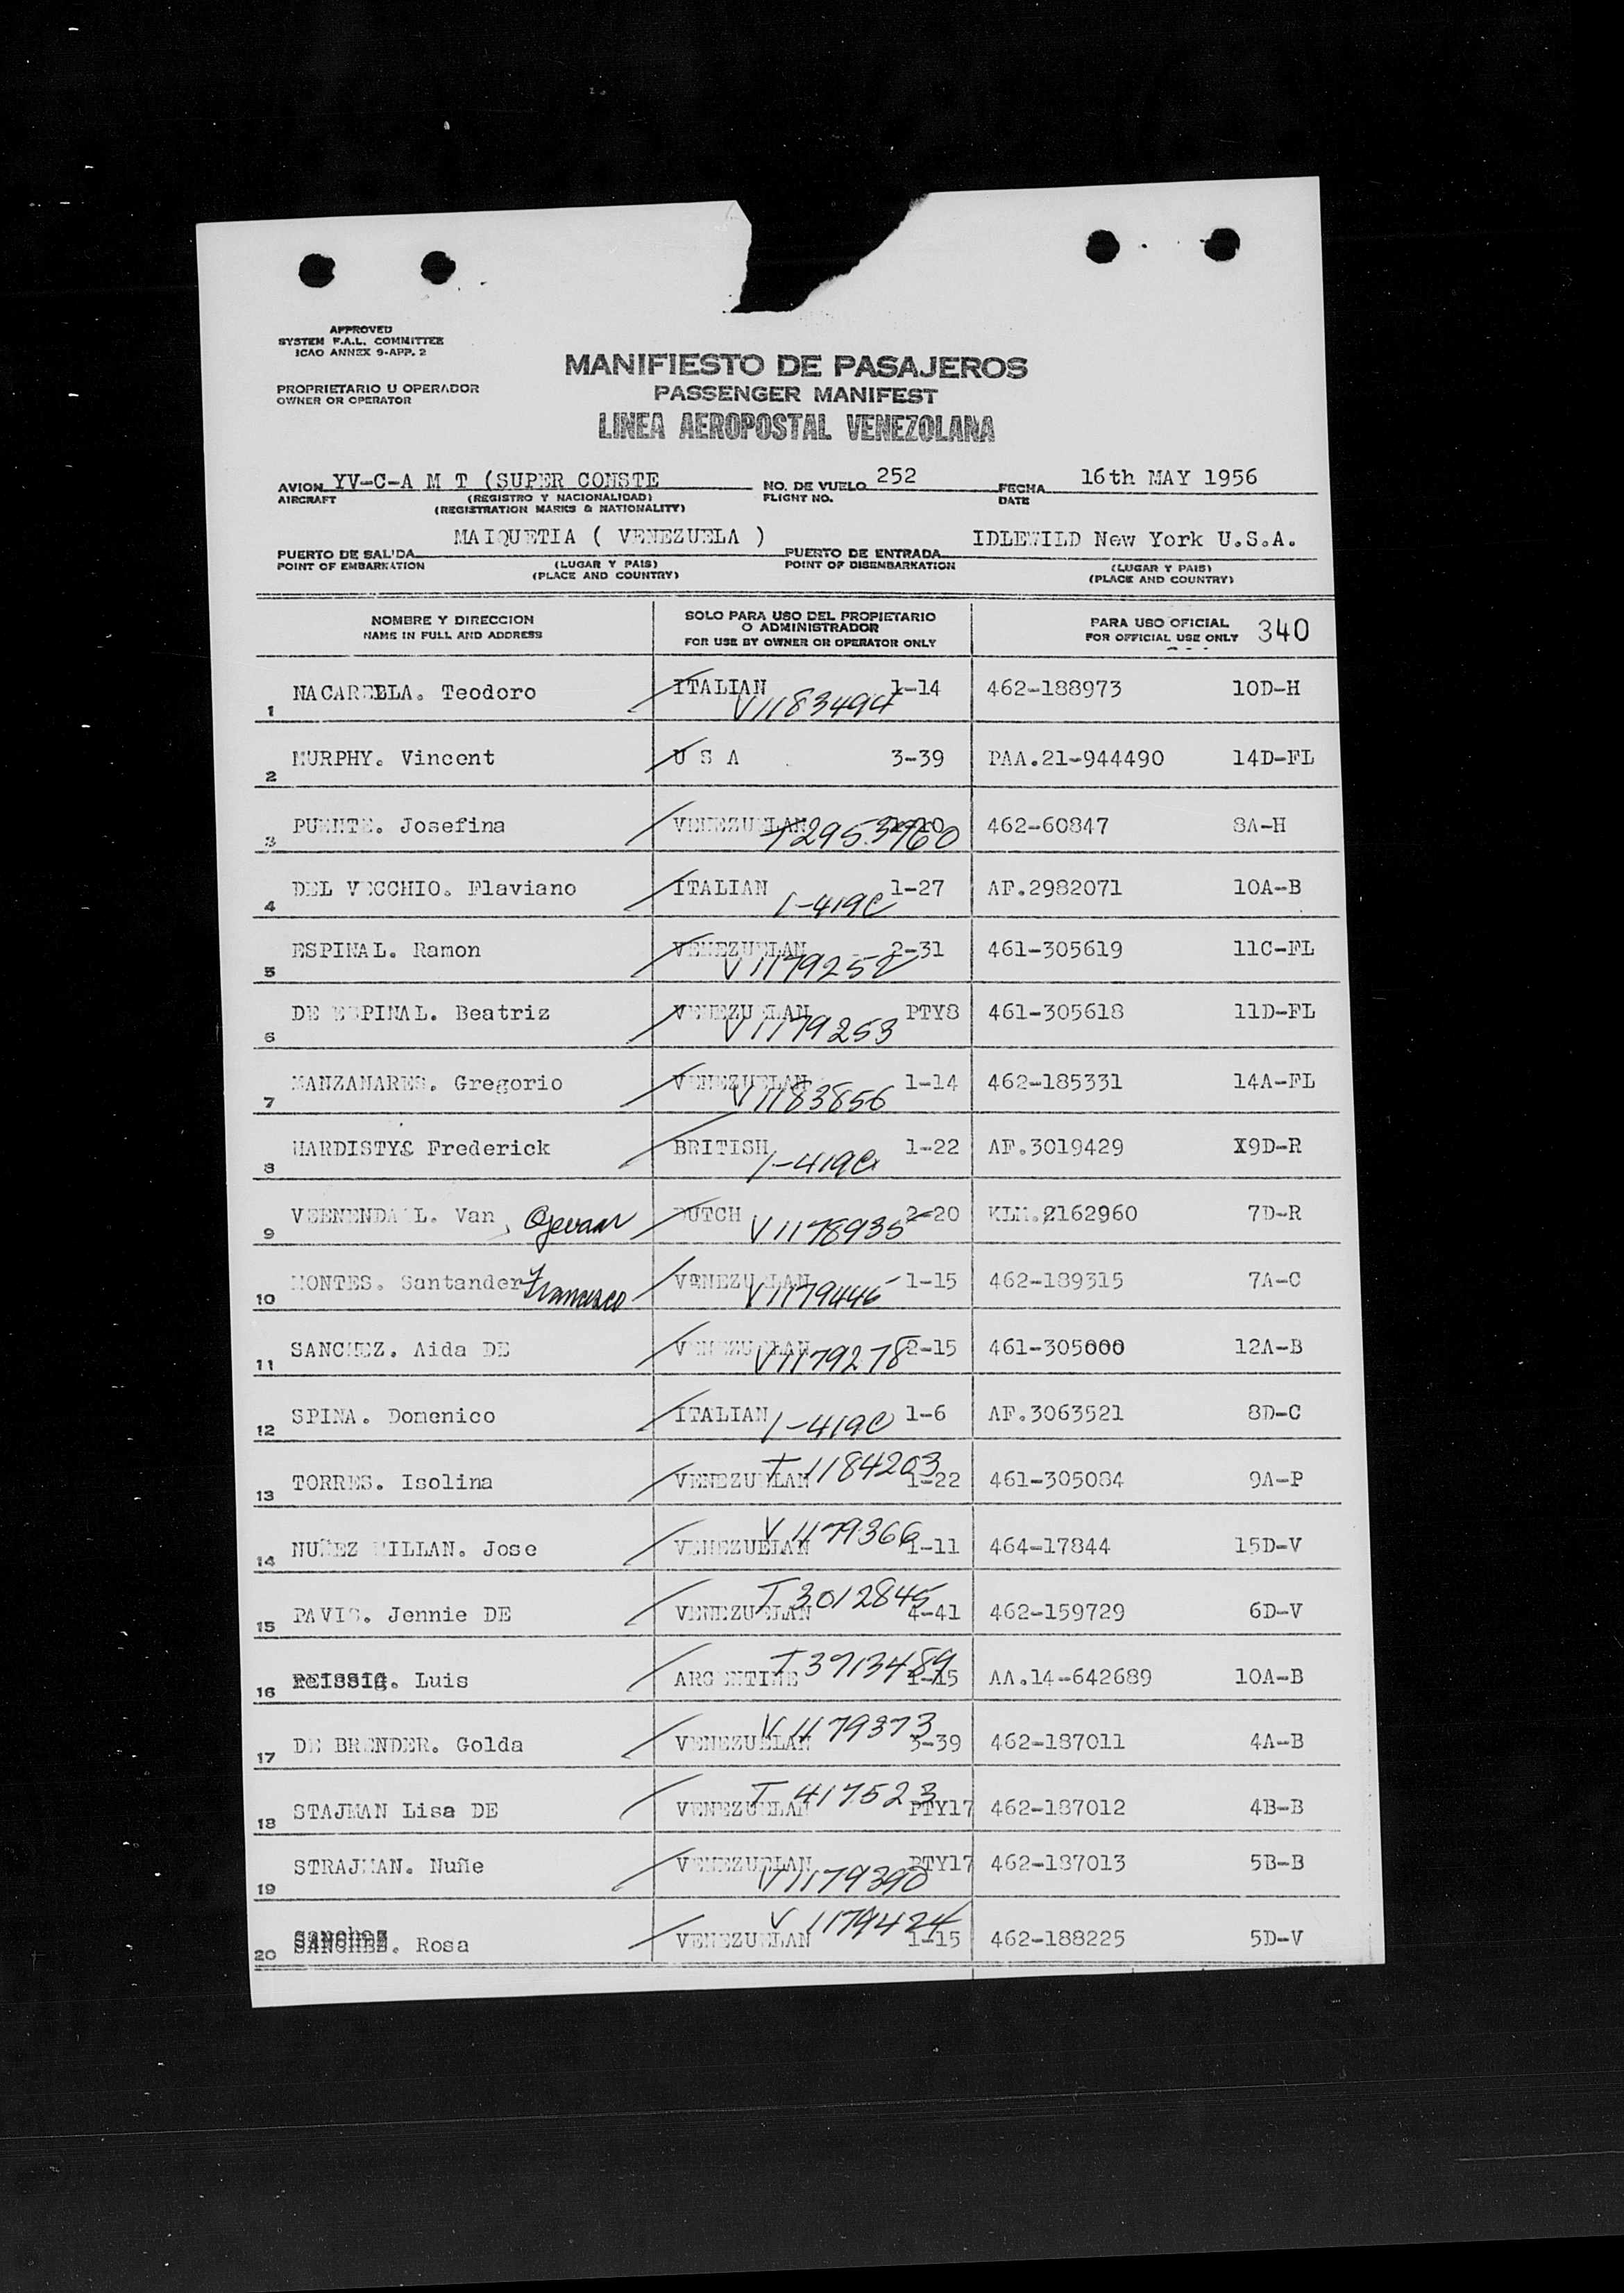 APPROVED
SYSTEM F.A.L. COMMITTEE
ICAO ANNEX 9-APP. 2
PROPRIETARIO U OPERADOR
OWNER OR OPERATOR
MANIFIESTO DE PASAJEROS
PASSENGER MANIFEST
LINEA AEROPOSTAL VENEZOLANA
AVION YV-C-A M T (SUPER CONSTE NO. DE VUELO 252 FECHA 16th MAY 1956
AIRCRAFT (REGISTRO Y NACIONALIDAD) FLIGHT NO. DATE
(REGISTRATION MARKS & NATIONALITY)
MAIQUETIA ( VENEZUELA ) IDLEWILD New York U.S.A.
PUERTO DE SALIDA PUERTO DE ENTRADA
POINT OF EMBARKATION (LUGAR Y PAIS) POINT OF DISEMBARKATION (LUGAR Y PAIS)
(PLACE AND COUNTRY) (PLACE AND COUNTRY)
NOMBRE Y DIRECCION SOLO PARA USO DEL PROPIETARIO PARA USO OFICIAL
NAME IN FULL AND ADDRESS O ADMINISTRADOR FOR OFFICIAL USE ONLY 340
FOR USE BY OWNER OR OPERATOR ONLY
1 Teodoro ITALIAN 1-14 462-188973 10D-H
V1183494
2 MURPHY. Vincent U S A 3-39 PAA.21-944490 14D-FL
3 PUENTE. Josefina VENEZUELAN 462-60847 8A-H
4 DEL VECCHIO. Flaviano ITALIAN 1-27 AF.2982071 10A-B
1-419C
5 ESPINAL. Ramon VENEZUELAN 2-31 461-305619 11C-FL
V1179252
6 DE ESPINAL. Beatriz VENEZUELAN PTY8 461-305618 11D-FL
V1179253
7 MANZANARES. Gregorio VENEZUELAN 1-14 462-185331 14A-FL
V1183856
8 Frederick BRITISH 1-22 AF.3019429 X9D-R
1-419C
9 VEENENDAAL. Van DUTCH 2-20 KLM.2162960 7D-R
V1178935
10 MONTES. Santander Francisco VENEZUELAN 1-15 462-189315 7A-C
V1179446
11 SANCHEZ. Aida DE VENEZUELAN 2-15 461-305000 12A-B
V1179278
12 SPINA. Domenico ITALIAN 1-419C 1-6 AF.3063521 8D-C
T1184203
13 TORRES. Isolina VENEZUELAN 1-22 461-305084 9A-P
V1179366
14 NUÑEZ MILLAN. Jose VENEZUELAN 1-11 464-17844 15D-V
T3012845
15 PAVIS. Jennie DE VENEZUELAN 4-41 462-159729 6D-V
T3913489
16 REISSIG. Luis ARGENTINE 1-15 AA.14-642689 10A-B
V1179373
17 DE BRENDER. Golda VENEZUELAN 3-39 462-187011 4A-B
T417523
18 STAJMAN Lisa DE VENEZUELAN PTY17 462-187012 4B-B
19 STRAJMAN. Nuñe VENEZUELAN PTY17 462-187013 5B-B
V1179390
V1179424
20 SANCHEZ. Rosa VENEZUELAN 1-15 462-188225 5D-V